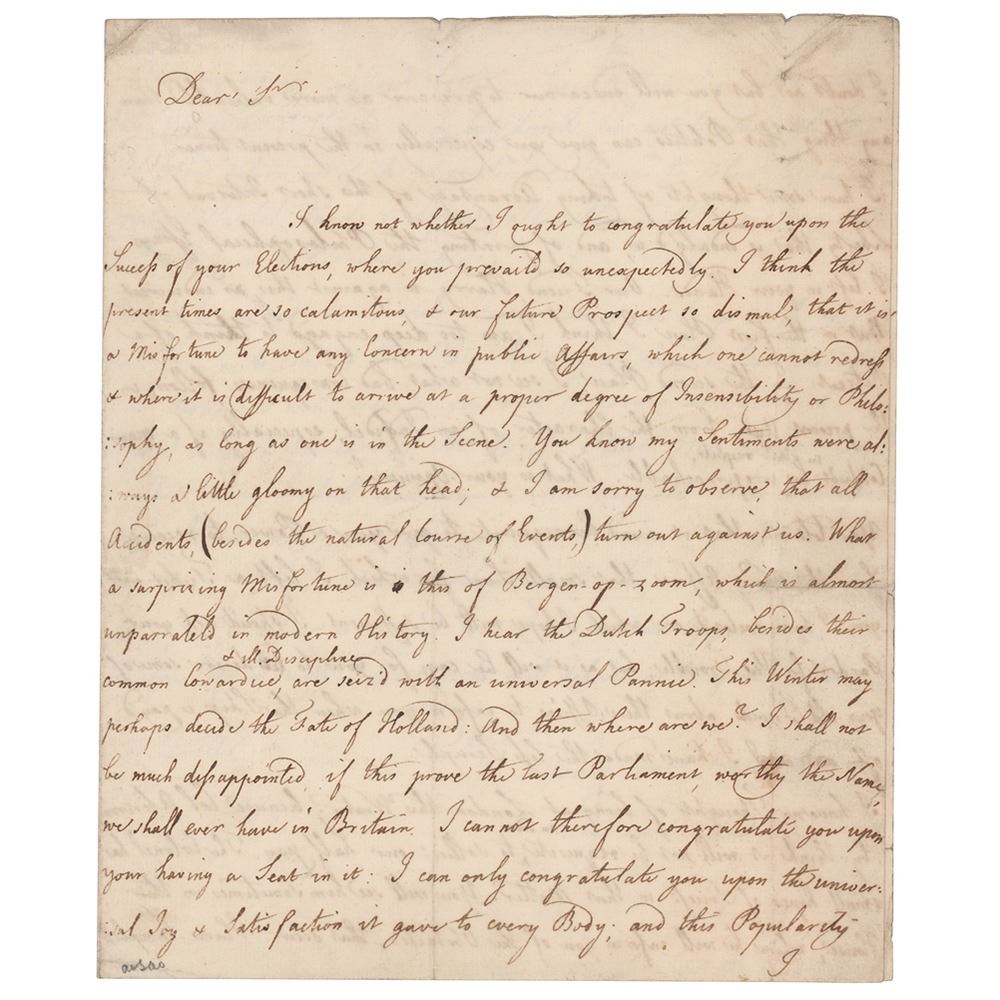 Dear Sir.
I know not whether I ought to congratulate you upon the
Success of your Elections, where you prevaild so unexpectedly. I think the
present times are so calamitous, & our future Prospect so dismal, that it is
a Misfortune to have any Concern in public Affairs, which one cannot redress
& where it is difficult to arrive at a proper degree of Insensibility or Philo:
:sophy, as long as one is in the Scene. You know my Sentiments were al:
:ways a little gloomy on that head; & I am sorry to observe, that all
Accidents, (besides the natural Course of Events,) turn out against us. What
a surprizing Misfortune is this of Bergen-op-zoom, which is almost
unparraleld in modern History. I hear the Dutch Troops, besides their
& ill Discipline
common Cowardice, are seiz'd with an universal Pannic. This Winter may
perhaps decide the Fate of Holland: And then where are we? I shall not
be much dissappointed, if this prove the last Parliament, worthy the Name,
we shall ever have in Britain. I cannot therefore congratulate you upon
your having a Seat in it: I can only congratulate you upon the univer:
:sal Joy & Satisfaction it gave to every Body; and this Popularity
I